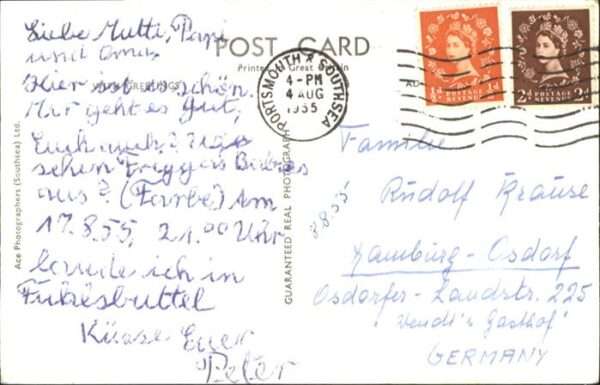 Liebe Mutti, Papi
und Oma
Hier ist es schön.
Mir geht es gut,
Euch auch?
schen
aus? (Farbe) Am
17.8.55, 21.00 Uhr
lande ich in
Fuhlsbüttel
Küsse Euer
Peter
POST CARD
Printed in Great Britain
Ace Photographers (Southsea) Ltd.
GUARANTEED REAL PHOTOGRAPH
PORTSMOUTH & SOUTHSEA
4-PM
4 AUG
1955
½d POSTAGE REVENUE ½d
2d POSTAGE REVENUE 2d
8.8.55
Familie
Rudolf Krause
Hamburg-Osdorf
Osdorfer-Landstr. 225
"Wendt's Gasthof"
GERMANY